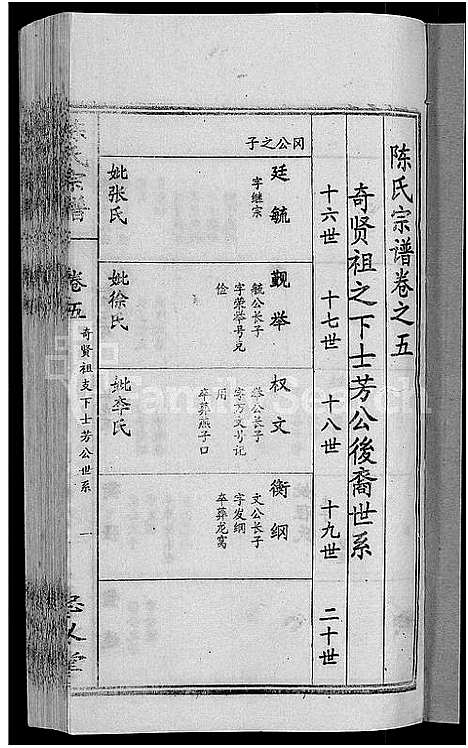 陈氏宗谱卷之五
奇贤祖之下士芳公後裔世系
十六世
十七世
十八世
十九世
二十世
冈公之子
廷毓
字继宗
妣张氏
觐举
毓公长子
字荣举号兑
俭
妣徐氏
权文
举公长子
字方文书记
用
卒葬燕子口
妣李氏
衡纲
文公长子
字发纲
卒葬龙窝
陈氏宗谱
卷五
奇贤祖支下士芳公世系
一
FamilySearch